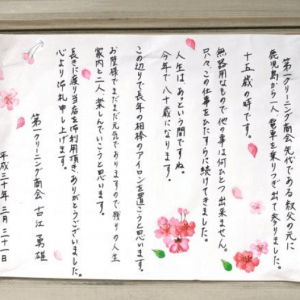 第一クリーニング商会先代である叔父の元に
鹿児島から一人、電車を乗りつぎ出て参りました。
十五歳の時です。
無器用なもので他の事は何ひとつ出来ません。
只々、この仕事をひたすらに続けてきました。
人生はあっという間ですね。
今年で八十歳になります。
この辺りで長年の相棒のアイロンを置こうと思います。
お陰様でまだまだ元気でありますので残りの人生
家内と二人、楽しんでいこうと思います。
長きに渡り当店を御利用頂き、ありがとうございました。
心より御礼申し上げます。
平成三十年三月二十一日
第一クリーニング商会 古江 勇雄